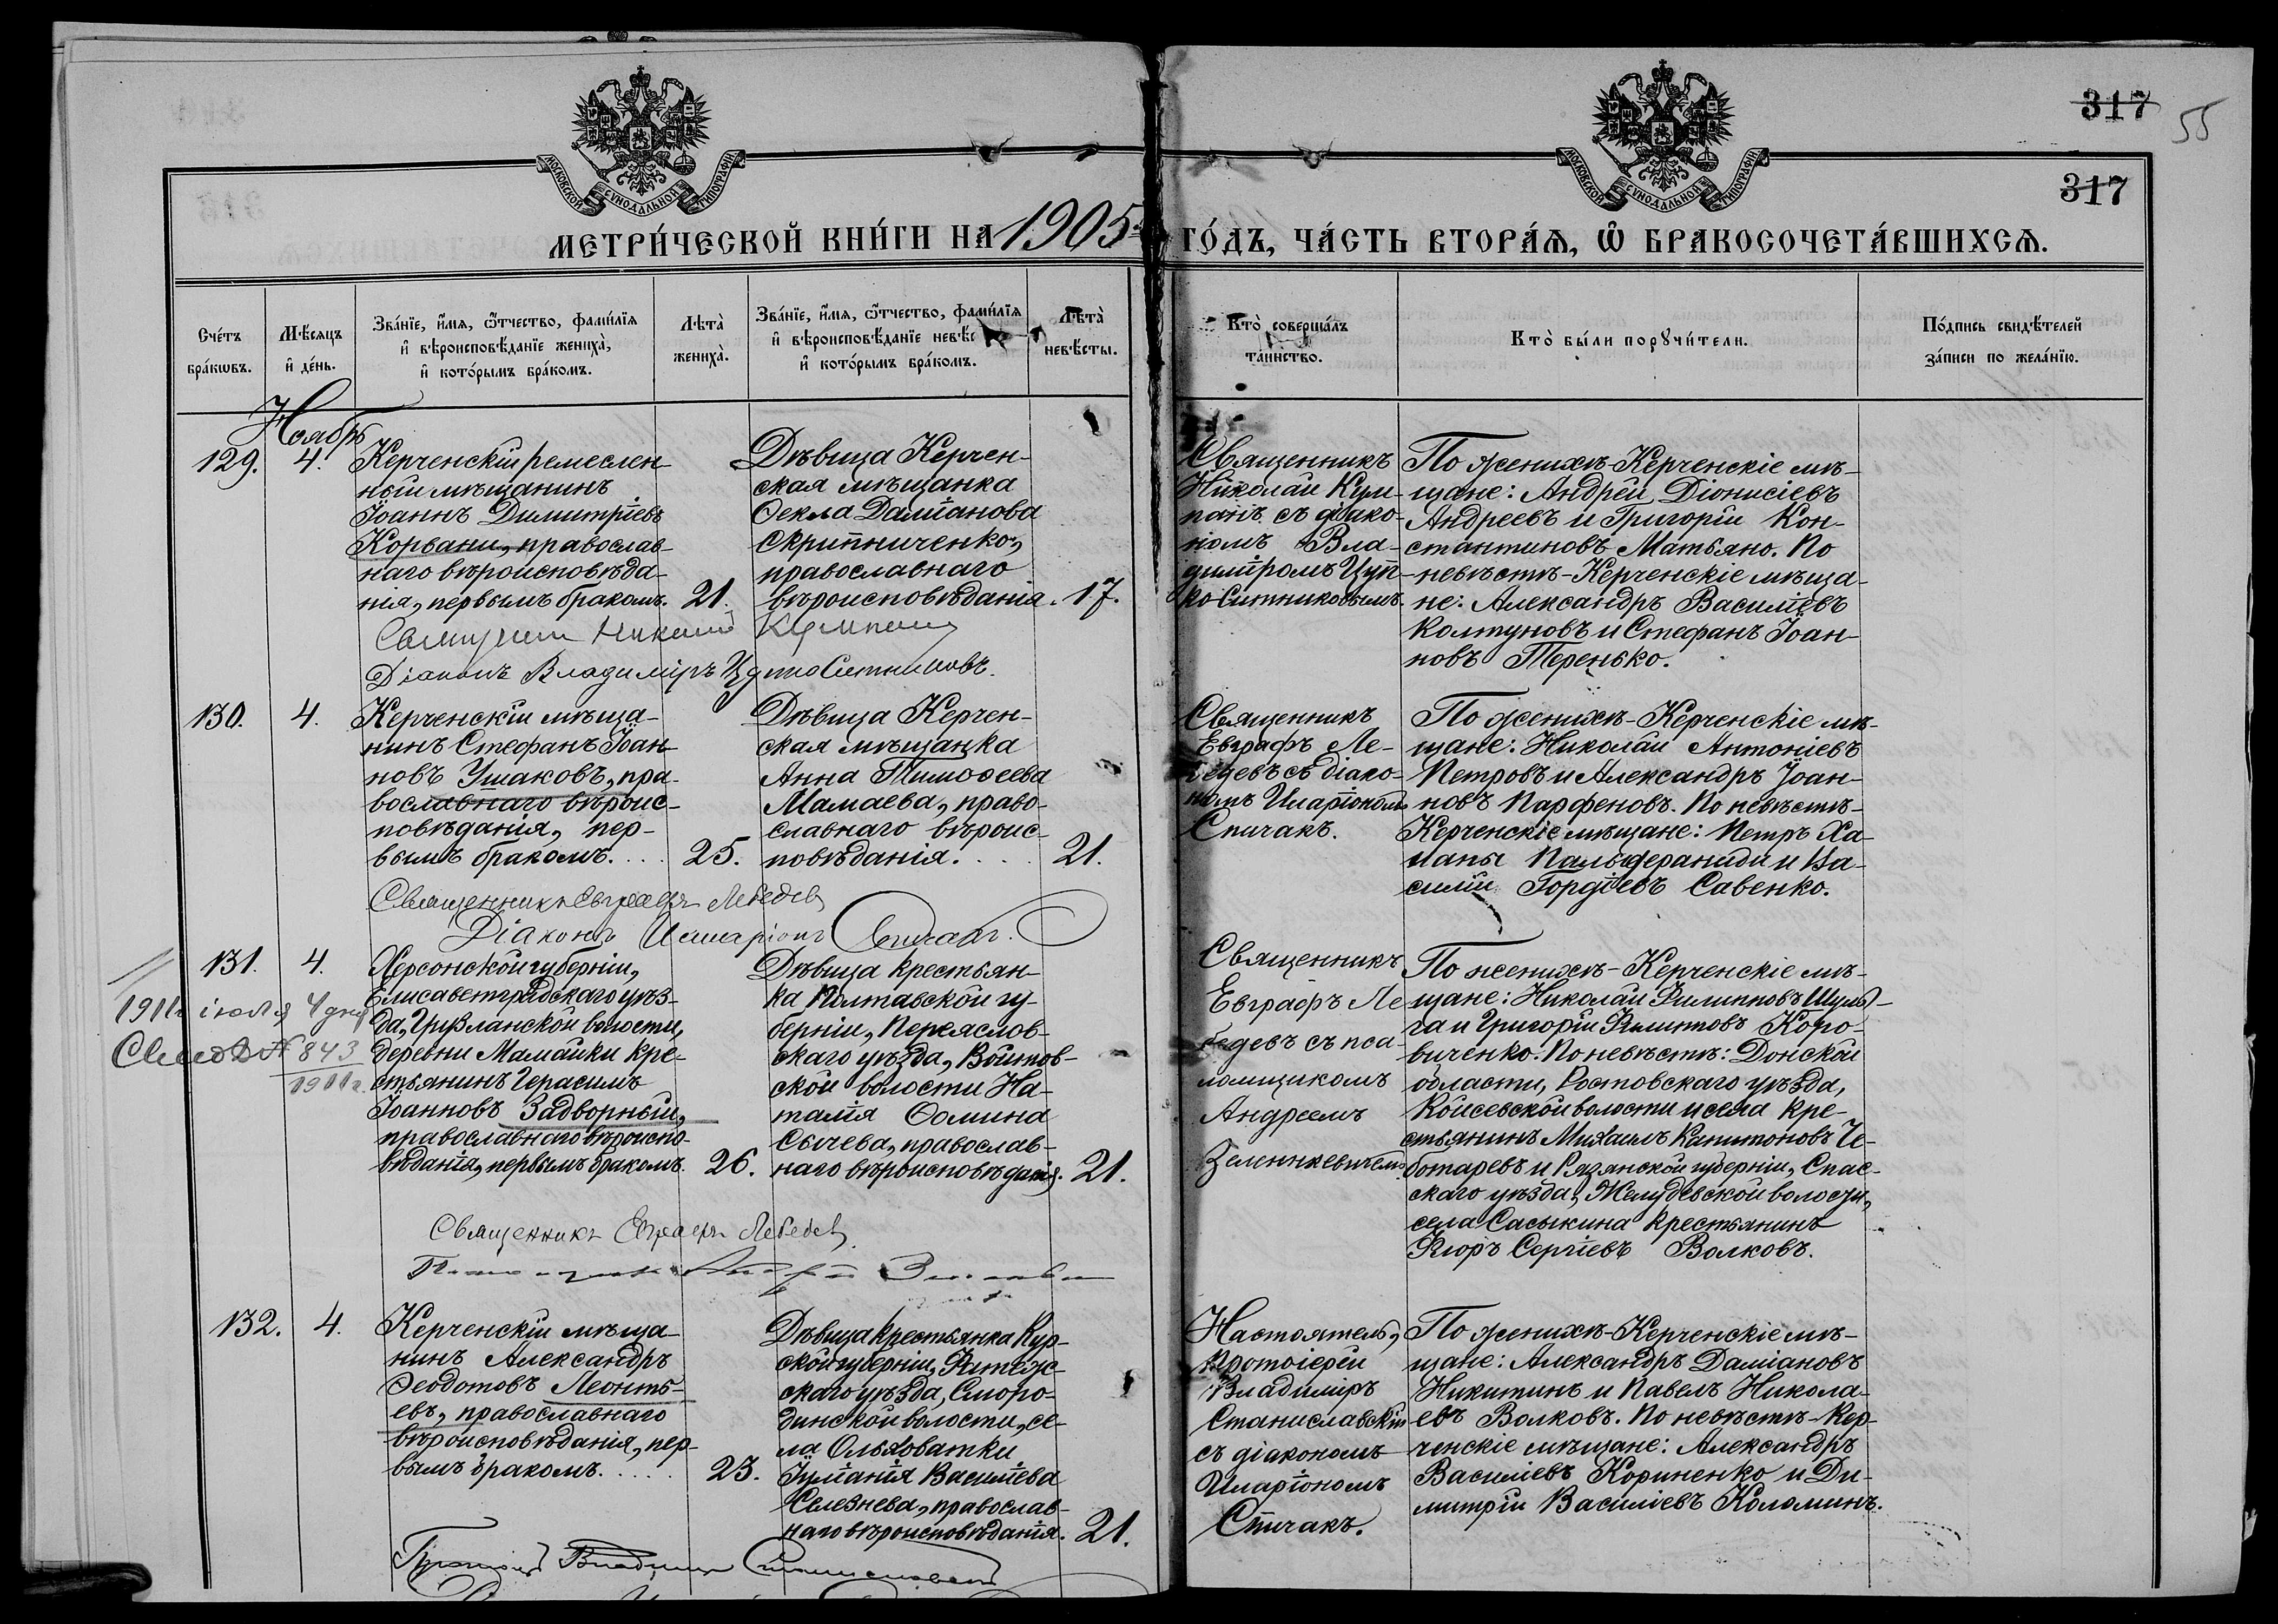 МОСКОВСКОЙ СѴНОДАЛЬНОЙ ТИПОГРАФІИ
МОСКОВСКОЙ СѴНОДАЛЬНОЙ ТИПОГРАФІИ
317
55
317
МЕТРИ́ЧЕСКОЙ КНИ́ГИ НА 1905 ГО́ДЪ, ЧА́СТЬ ВТОРА́Я, Ѡ БРАКОСОЧЕТА́ВШИХСЯ.
Сче́тъ
бра́кѡвъ.
Мѣ́сяцъ
и҆ де́нь.
Зва́нїе, и҆́мя, ѻ҆́тчество, фами́лїя
и҆ вѣроисповѣ́данїе жениха̀,
и҆ кото́рымъ бра́комъ.
Лѣта̀
жениха̀.
Зва́нїе, и҆́мя, ѻ҆́тчество, фами́лїя
и҆ вѣроисповѣ́данїе невѣ́с
и҆ кото́рымъ бра́комъ.
Лѣта̀
невѣ́сты.
Кто̀ соверша́лъ
та́инство.
Кто̀ бы́ли порꙋчи́тели.
По́дпись свидѣ́телей
за́писи по жела́нїю.
Ноябрь
129.
4.
Керченскій ремеслен-
ный мѣщанинъ
Іоаннъ Димитріевъ
Корвани, православ-
наго вѣроисповѣда-
нія, первымъ бракомъ.
21.
Дѣвица Керчен-
ская мѣщанка
Ѳекла Даміанова
Скрипниченко,
православнаго
вѣроисповѣданія.
17.
Священникъ
Николай Кум-
панъ съ діако-
номъ Вла-
диміромъ Цуп-
ко-Ситниковымъ.
По женихѣ-Керченскіе мѣ-
щане: Андрей Діонисіевъ
Андреевъ и Григорій Кон-
стантиновъ Матьяно. По
невѣстѣ-Керченскіе мѣща-
не: Александръ Василіевъ
Колтуновъ и Стефанъ Іоан-
новъ Теренько.
Діаконъ Владиміръ Цупко Ситниковъ.
130.
4.
Керченскій мѣща-
нинъ Стефанъ Іоан-
новъ Ушаковъ, пра-
вославнаго вѣроис-
повѣданія, пер-
вымъ бракомъ.
25.
Дѣвица Керчен-
ская мѣщанка
Анна Тимоѳеева
Мамаева, право-
славнаго вѣроис-
повѣданія.
21.
Священникъ
Евграфъ Ле-
бедевъ съ діако-
номъ Иларіономъ
Спичакъ.
По женихѣ-Керченскіе мѣ-
щане: Николай Антоніевъ
Петровъ и Александръ Іоан-
новъ Парфеновъ. По невѣстѣ-
Керченскіе мѣщане: Петръ Ха-
силій Гордіевъ Савенко.
Священникъ Евграфъ Лебедев
Діаконъ Иларіонъ Спичакъ.
131.
4.
1911 г. іюля 4 дня
№ 843
1911 г.
Херсонской губерніи,
Елисаветградскаго уѣз-
да, Грузланской волости,
деревни Мамайки кре-
стьянинъ Герасимъ
Іоанновъ Задворный,
православнаго вѣроиспо-
вѣданія, первымъ бракомъ.
26.
Дѣвица крестьян-
ка Полтавской гу-
берніи, Переяслов-
скаго уѣзда, Войтов-
ской волости На-
талія Ѳомина
Сычева, православ-
наго вѣроисповѣданія.
21.
Священникъ
Евграфъ Ле-
бедевъ съ пса-
ломщикомъ
Андреемъ
Зеленкевичемъ.
По женихѣ-Керченскіе мѣ-
щане: Николай Филипповъ Шуль-
га и Григорій Филиповъ Коро-
виченко. По невѣстѣ: Донской
области, Ростовскаго уѣзда,
Койсевской волости и села кре-
стьянинъ Михаилъ Капитоновъ Че-
ботаревъ и Рязанской губерніи, Спас-
скаго уѣзда, Желудевской волости,
села Сасыкина крестьянинъ
Ѳлоръ Сергіевъ Волковъ.
Священникъ Евграфъ Лебедев
132.
4.
Керченскій мѣща-
нинъ Александръ
Ѳеодотовъ Леонть-
евъ, православнаго
вѣроисповѣданія, пер-
вымъ бракомъ.
23.
Дѣвица крестьянка Кур-
ской губерніи, Фатеж-
скаго уѣзда, Сморо-
динской волости, се-
ла Ольховатки
Іуліанія Василіева
Селезнева, православ-
наго вѣроисповѣданія.
21.
Настоятель,
Протоіерей
Владиміръ
Станиславскій
съ діакономъ
Иларіономъ
Спичакъ.
По женихѣ-Керченскіе мѣ-
щане: Александръ Даміановъ
Никитинъ и Павелъ Никола-
евъ Волковъ. По невѣстѣ-Кер-
ченскіе мѣщане: Александръ
Василіевъ Кориненко и Ди-
митрій Василіевъ Коломинъ.